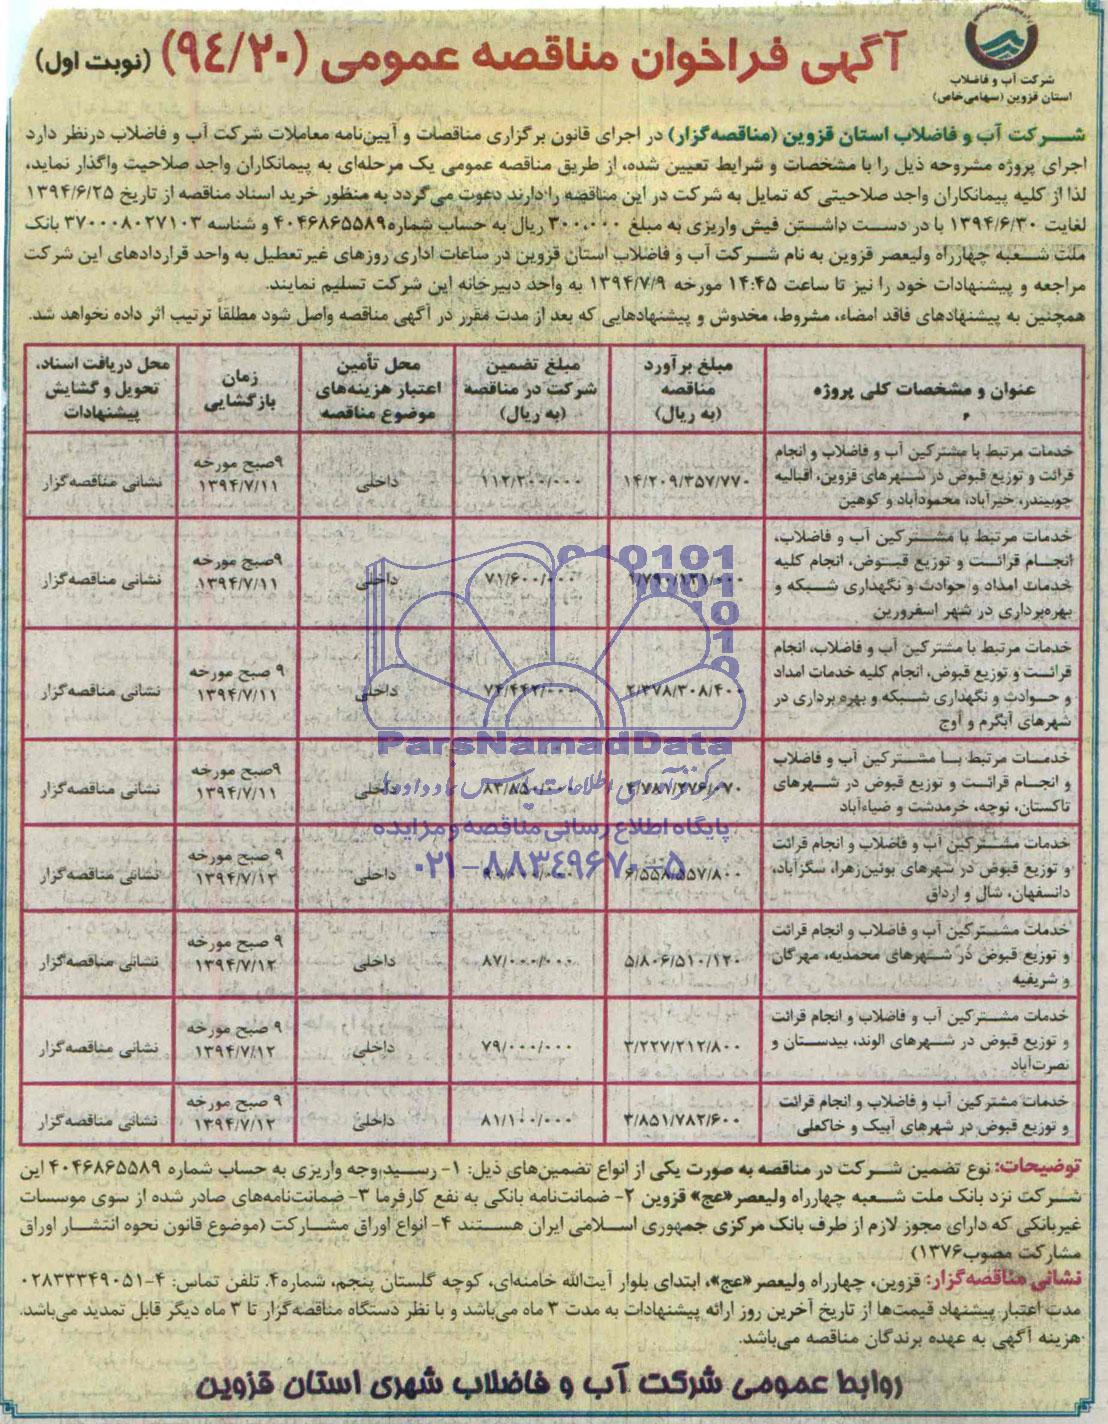 آگهی فراخوان مناقصه عمومی (۹۴/۲۰) (نوبت اول)
شرکت آب و فاضلاب
استان قزوین (سهامی خاص)
شرکت آب و فاضلاب استان قزوین (مناقصه‌گزار) در اجرای قانون برگزاری مناقصات و آیین‌نامه معاملات شرکت آب و فاضلاب درنظر دارد
اجرای پروژه مشروحه ذیل را با مشخصات و شرایط تعیین شده، از طریق مناقصه عمومی یک مرحله‌ای به پیمانکاران واجد صلاحیت واگذار نماید،
لذا از کلیه پیمانکاران واجد صلاحیتی که تمایل به شرکت در این مناقصه را دارند دعوت می‌گردد به منظور خرید اسناد مناقصه از تاریخ ۱۳۹۴/۶/۲۵
لغایت ۱۳۹۴/۶/۳۰ با در دست داشتن فیش واریزی به مبلغ ۳۰۰،۰۰۰ ریال به حساب شماره ۴۰۴۶۸۶۵۵۸۹ و شناسه ۳۷۰۰۰۸۰۲۷۱۰۳ بانک
ملت شعبه چهارراه ولیعصر قزوین به نام شرکت آب و فاضلاب استان قزوین در ساعات اداری روزهای غیرتعطیل به واحد قراردادهای این شرکت
مراجعه و پیشنهادات خود را نیز تا ساعت ۱۴:۴۵ مورخه ۱۳۹۴/۷/۹ به واحد دبیرخانه این شرکت تسلیم نمایند.
همچنین به پیشنهادهای فاقد امضاء، مشروط، مخدوش و پیشنهادهایی که بعد از مدت مقرر در آگهی مناقصه واصل شود مطلقاً ترتیب اثر داده نخواهد شد.
عنوان و مشخصات کلی پروژه
مبلغ برآورد
مناقصه
(به ریال)
مبلغ تضمین
شرکت در مناقصه
(به ریال)
محل تأمین
اعتبار هزینه‌های
موضوع مناقصه
زمان
بازگشایی
محل دریافت اسناد،
تحویل و گشایش
پیشنهادات
خدمات مرتبط با مشترکین آب و فاضلاب و انجام
قرائت و توزیع قبوض در شهرهای قزوین، اقبالیه
چوبیندر، خیرآباد، محمودآباد و کوهین
۱۴/۲۰۹/۳۵۷/۷۷۰
۱۱۲/۳۰۰/۰۰۰
داخلی
۹صبح مورخه
۱۳۹۴/۷/۱۱
نشانی مناقصه‌گزار
خدمات مرتبط با مشترکین آب و فاضلاب،
انجام قرائت و توزیع قبوض، انجام کلیه
خدمات امداد و حوادث و نگهداری شبکه و
بهره‌برداری در شهر اسفرورین
۷۱/۶۰۰/۰۰۰
داخلی
۹صبح مورخه
۱۳۹۴/۷/۱۱
نشانی مناقصه‌گزار
خدمات مرتبط با مشترکین آب و فاضلاب، انجام
قرائت و توزیع قبوض، انجام کلیه خدمات امداد
و حوادث و نگهداری شبکه و بهره‌برداری در
شهرهای آبگرم و آوج
۲/۳۷۸/۳۰۸/۴۰۰
داخلی
۹ صبح مورخه
۱۳۹۴/۷/۱۱
نشانی مناقصه‌گزار
خدمات مرتبط با مشترکین آب و فاضلاب
و انجام قرائت و توزیع قبوض در شهرهای
تاکستان، نوچه، خرمدشت و ضیاءآباد
داخلی
۹صبح مورخه
۱۳۹۴/۷/۱۱
نشانی مناقصه‌گزار
خدمات مشترکین آب و فاضلاب و انجام قرائت
و توزیع قبوض در شهرهای بوئین‌زهرا، سگزآباد،
دانسفهان، شال و ارداق
۶/۵۵۸/۵۵۷/۸۰۰
داخلی
۹ صبح مورخه
۱۳۹۴/۷/۱۲
نشانی مناقصه‌گزار
خدمات مشترکین آب و فاضلاب و انجام قرائت
و توزیع قبوض در شهرهای محمدیه، مهرگان
و شریفیه
۵/۸۰۶/۵۱۰/۱۲۰
۸۷/۰۰۰/۰۰۰
داخلی
۹ صبح مورخه
۱۳۹۴/۷/۱۲
نشانی مناقصه‌گزار
خدمات مشترکین آب و فاضلاب و انجام قرائت
و توزیع قبوض در شهرهای الوند، بیدستان و
نصرت‌آباد
۳/۲۲۷/۲۱۲/۸۰۰
۷۹/۰۰۰/۰۰۰
داخلی
۹ صبح مورخه
۱۳۹۴/۷/۱۲
نشانی مناقصه‌گزار
خدمات مشترکین آب و فاضلاب و انجام قرائت
و توزیع قبوض در شهرهای آبیک و خاکعلی
۳/۸۵۱/۷۸۲/۶۰۰
۸۱/۱۰۰/۰۰۰
داخلی
۹ صبح مورخه
۱۳۹۴/۷/۱۲
نشانی مناقصه‌گزار
ParsNamadData
پایگاه اطلاع رسانی مناقصه و مزایده
۰۲۱-۸۸۳۴۹۶۷۰-۵
توضیحات: نوع تضمین شرکت در مناقصه به صورت یکی از انواع تضمین‌های ذیل: ۱- رسید وجه واریزی به حساب شماره ۴۰۴۶۸۶۵۵۸۹ این
شرکت نزد بانک ملت شعبه چهارراه ولیعصر«عج» قزوین ۲- ضمانت‌نامه بانکی به نفع کارفرما ۳- ضمانت‌نامه‌های صادر شده از سوی موسسات
غیربانکی که دارای مجوز لازم از طرف بانک مرکزی جمهوری اسلامی ایران هستند ۴- انواع اوراق مشارکت (موضوع قانون نحوه انتشار اوراق
مشارکت مصوب۱۳۷۶)
نشانی مناقصه‌گزار: قزوین، چهارراه ولیعصر«عج»، ابتدای بلوار آیت‌الله خامنه‌ای، کوچه گلستان پنجم، شماره۴. تلفن تماس: ۴-۰۲۸۳۳۳۴۹۰۵۱
مدت اعتبار پیشنهاد قیمت‌ها از تاریخ آخرین روز ارائه پیشنهادات به مدت ۳ ماه می‌باشد و با نظر دستگاه مناقصه‌گزار تا ۳ ماه دیگر قابل تمدید می‌باشد.
هزینه آگهی به عهده برندگان مناقصه می‌باشد.
روابط عمومی شرکت آب و فاضلاب شهری استان قزوین